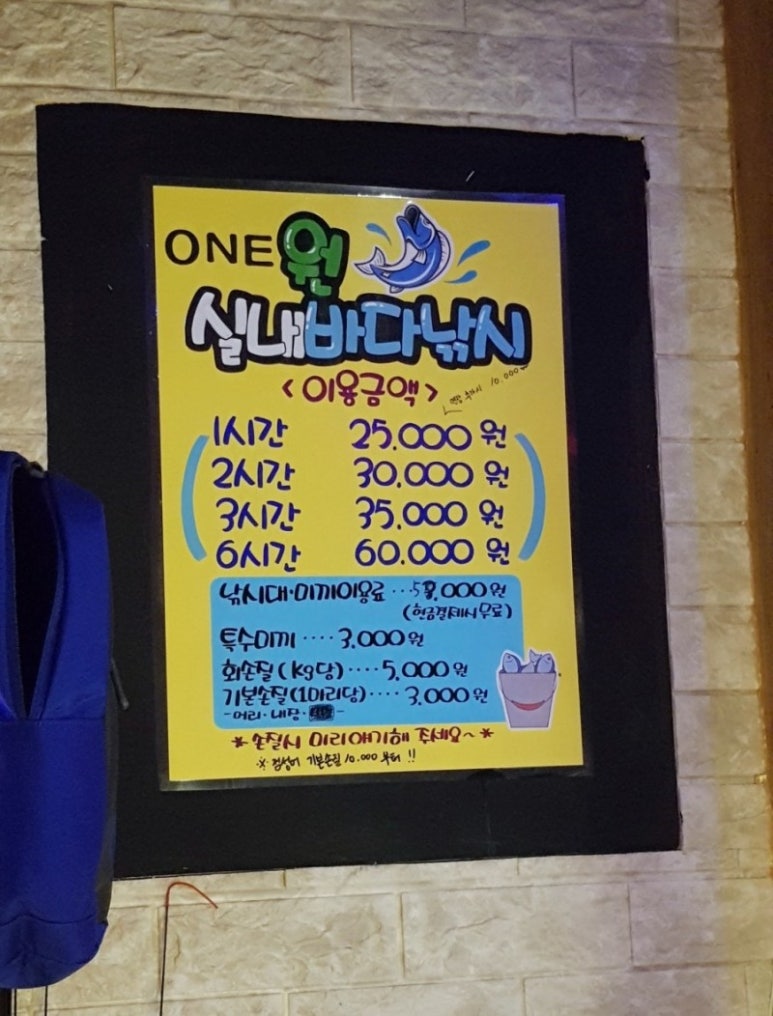 ONE원
실내바다낚시
<이용금액>
10.000
1시간 25.000 원
2시간 30.000 원
3시간 35.000 원
6시간 60.000 원
낚시대·미끼이용료 ··· 5,000원
(현금결제시 무료)
특수미끼 ···· 3.000원
회손질(kg당) ···· 5,000원
기본손질(1마리당) ···· 3.000원
-머리·내장·
*손질시 미리얘기해 주세요~*
※ 점성어 기본손질 10.000 부터 !!